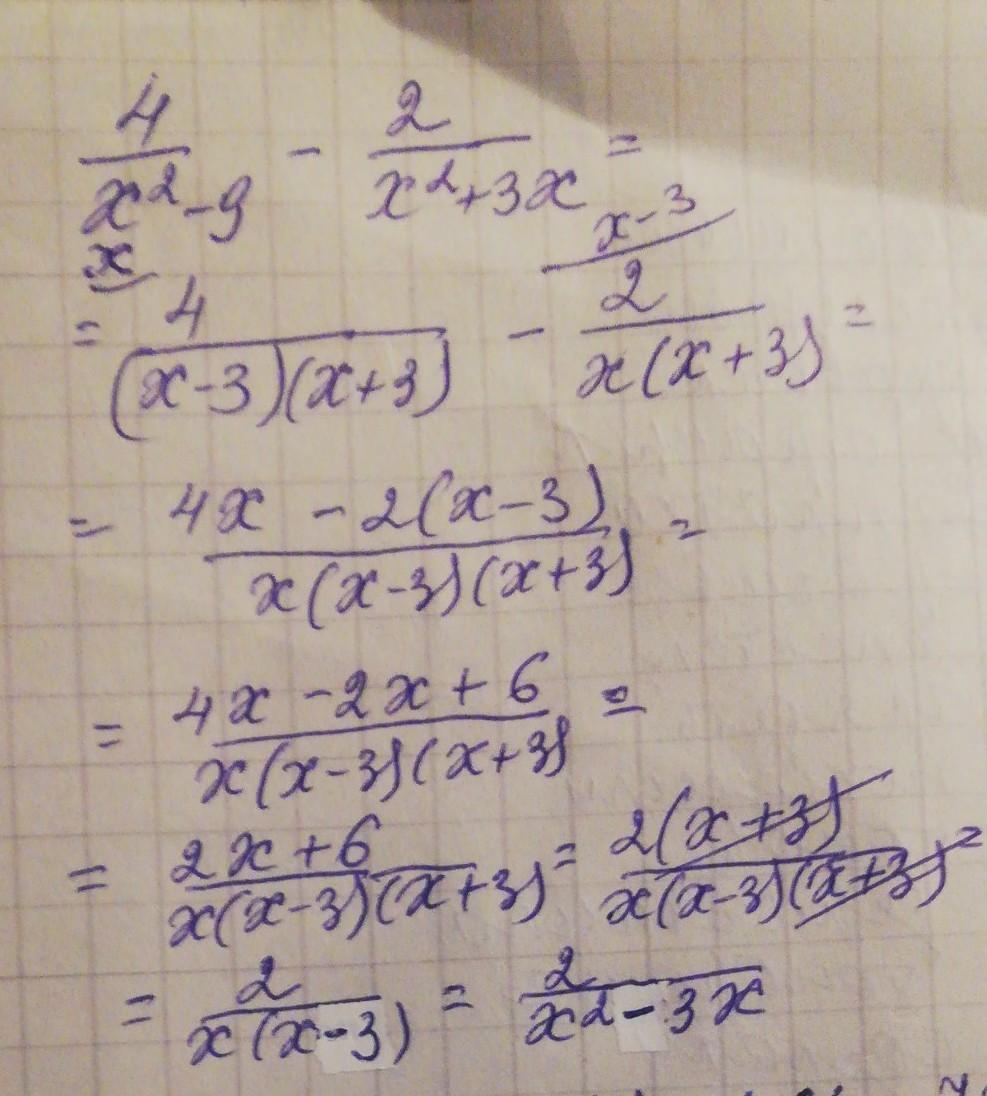 4/(x²-9) - 2/(x²+3x) =
x x-3
= 4/((x-3)(x+3)) - 2/(x(x+3)) =
= (4x - 2(x-3))/(x(x-3)(x+3)) =
= (4x - 2x + 6)/(x(x-3)(x+3)) =
= (2x+6)/(x(x-3)(x+3)) = 2(x+3)/(x(x-3)(x+3)) =
= 2/(x(x-3)) = 2/(x²-3x)